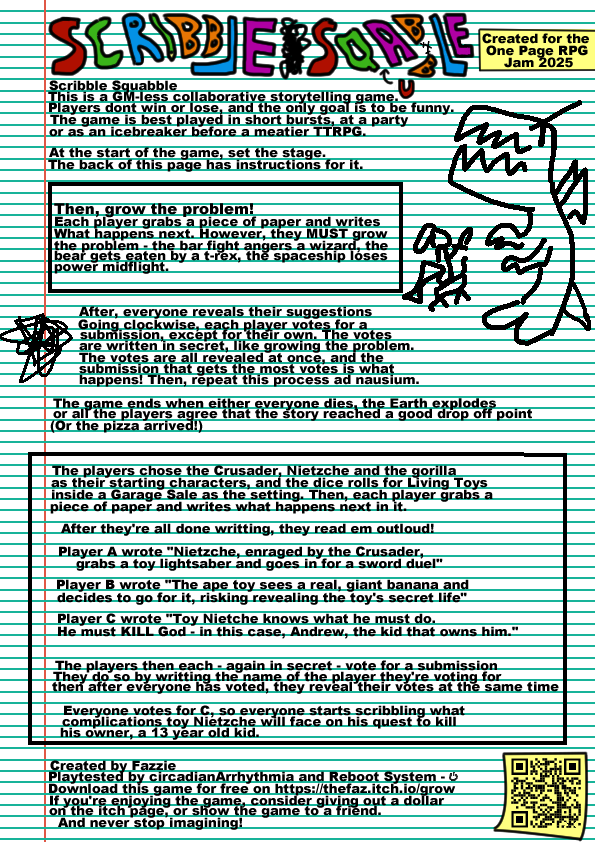 SCRIBBLE SQABBLE
U
Created for the
One Page RPG
Jam 2025
Scribble Squabble
This is a GM-less collaborative storytelling game.
Players dont win or lose, and the only goal is to be funny.
The game is best played in short bursts, at a party
or as an icebreaker before a meatier TTRPG.
At the start of the game, set the stage.
The back of this page has instructions for it.
Then, grow the problem!
Each player grabs a piece of paper and writes
What happens next. However, they MUST grow
the problem - the bar fight angers a wizard, the
bear gets eaten by a t-rex, the spaceship loses
power midflight.
After, everyone reveals their suggestions
Going clockwise, each player votes for a
submission, except for their own. The votes
are written in secret, like growing the problem.
The votes are all revealed at once, and the
submission that gets the most votes is what
happens! Then, repeat this process ad nausium.
The game ends when either everyone dies, the Earth explodes
or all the players agree that the story reached a good drop off point
(Or the pizza arrived!)
The players chose the Crusader, Nietzche and the gorilla
as their starting characters, and the dice rolls for Living Toys
inside a Garage Sale as the setting. Then, each player grabs a
piece of paper and writes what happens next in it.
After they're all done writting, they read em outloud!
Player A wrote "Nietzche, enraged by the Crusader,
grabs a toy lightsaber and goes in for a sword duel"
Player B wrote "The ape toy sees a real, giant banana and
decides to go for it, risking revealing the toy's secret life"
Player C wrote "Toy Nietche knows what he must do.
He must KILL God - in this case, Andrew, the kid that owns him."
The players then each - again in secret - vote for a submission
They do so by writting the name of the player they're voting for
then after everyone has voted, they reveal their votes at the same time
Everyone votes for C, so everyone starts scribbling what
complications toy Nietzche will face on his quest to kill
his owner, a 13 year old kid.
Created by Fazzie
Playtested by circadianArrhythmia and Reboot System - ⏻
Download this game for free on https://thefaz.itch.io/grow
If you're enjoying the game, consider giving out a dollar
on the itch page, or show the game to a friend.
And never stop imagining!